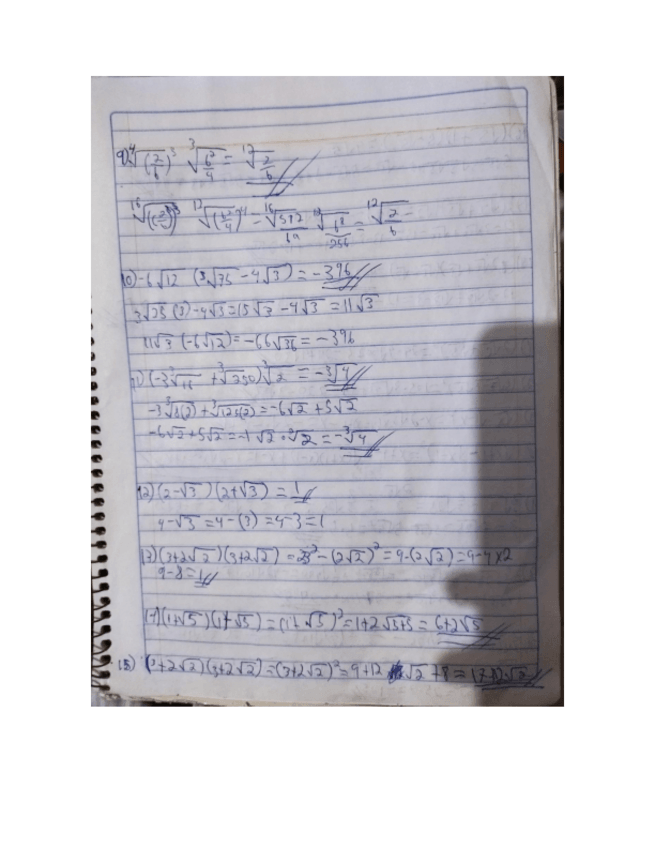 9) ⁴√(2/b)³ ³√b²/4 = ¹²√2/b
¹²√512/b⁹ ¹²√b⁸/256 = ¹²√2/b
10) -6√12 (3√75 - 4√3) = -396
3√25(3) - 4√3 = 15√3 - 4√3 = 11√3
11√3 (-6√12) = -66√36 = -396
11) (-3³√16 + ³√250) ³√2 = -³√4
-3³√8(2) + ³√125(2) = -6√2 + 5√2
-6√2 + 5√2 = -1√2 · ³√2 = -³√4
12) (2-√3)(2+√3) = 1
4-√3 = 4-(3) = 4-3 = 1
13) (3+2√2)(3+2√2) = 3² - (2√2)² = 9-(2√2) = 9-4×2
9-8 = 1
14) (1+√5)(1+√5) = (1+√5)² = 1+2√5+5 = 6+2√5
15) (3+2√2)(3+2√2) = (3+2√2)² = 9+12 √2 +8 =